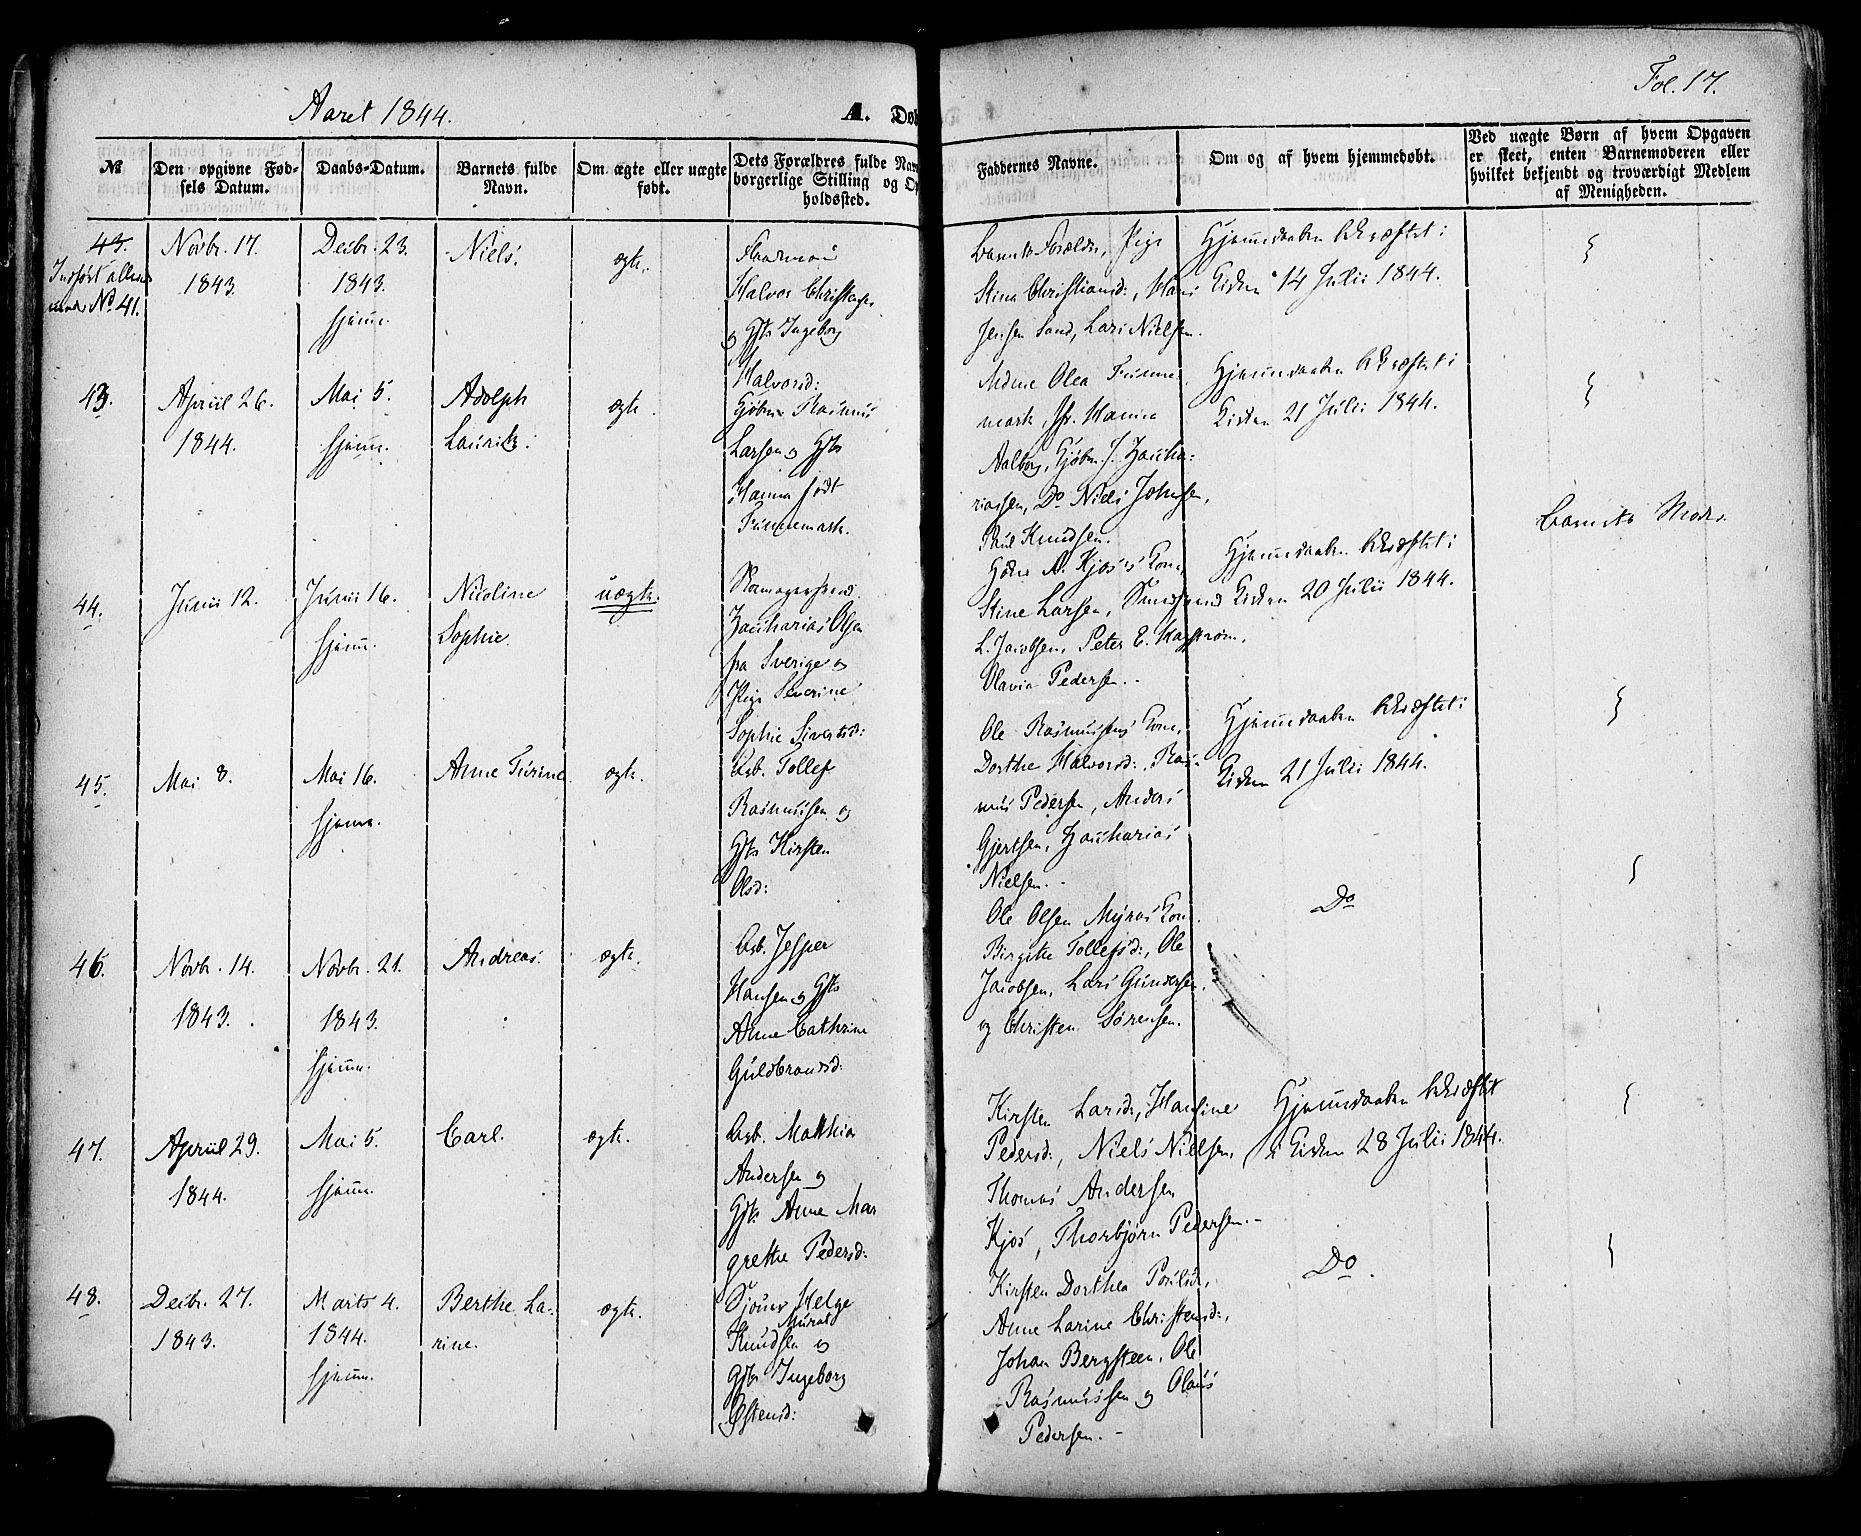 Fol. 17.
Aaret 1844.
A. Døb
№
Den opgivne Fød-
sels Datum.
Daabs-Datum.
Barnets fulde
Navn.
Om ægte eller uægte
født.
Dets Forældres fulde Nav
borgerlige Stilling og Op
holdssted.
Faddernes Navne.
Om og af hvem hjemmedøbt.
Ved uægte Børn af hvem Opgaven
er skeet, enten Barnemoderen eller
hvilket bekjendt og troværdigt Medlem
af Menigheden.
43.
Indført
under No 41.
Novbr. 17.
1843.
Decbr. 23.
1843.
hjemme.
Niels.
ægte.
Halvor Christophs
og Gjts Ingeborg
Halvorsd:
Barnets Forældre, Pige
Stine Christiansd:, Hans
Jensen Sand, Lars Nielsen.
Hjemmedaaben bekræftet i
Kirken 14 Julii 1844.
43.
Apriil 26.
1844.
Mai 5.
hjemme.
Adolph
Lauritz.
ægte.
Kjøbmd Rasmus
Larsen og Gjts
Hanna født
Finnemark.
Mdme Olea Finne-
mark, Jfr. Hanna
Aalborg, Kjøbm. J. Zacha-
riassen, Do Niels Johnsen,
Paul Knudsen.
Hjemmedaaben bekræftet i
Kirken 21 Julii 1844.
44.
Junii 12.
Junii 16.
hjemme.
Nicoline
Sophie.
uægte.
Zacharias Olsen
fra Sverige og
Pige Severine
Sophie Sivertsd:
A. Kjos's Kone,
Stine Larsen,
L. Jacobsen, Peter E. Kagstrøm,
Olavia Pedersen.
Hjemmedaaben bekræftet i
Kirken 20 Julii 1844.
Barnets Moder.
45.
Mai 8.
Mai 16.
hjemme.
Anne Turine.
ægte.
Arb. Tollef
Rasmussen og
Gjts Kirsten
Olsd:
Ole Rasmussens Kone,
Dorthe Halvorsd:, Ras-
mus Pedersen, Anders
Gjertsen, Zacharias
Nielsen.
Hjemmedaaben bekræftet i
Kirken 21 Julii 1844.
46.
Novbr. 14.
1843.
Novbr. 21.
1843.
hjemme.
Andreas.
ægte.
Arb. Jesper
Hansen og Gjts
Anne Cathrine
Guldbrandsd:
Ole Olsen Myras Kone.
Birgitte Tollefsd:, Ole
Jacobsen, Lars Gundersen,
og Christen Sørensen.
Do
47.
Apriil 29.
1844.
Mai 5.
hjemme.
Carl.
ægte.
Arb. Mathias
Andersen og
Gjts Anne Mar
grethe Pedersd:
Kirsten Larsd:, Hansine
Pedersd:, Niels Nielsen,
Thomas Andersen
Kjos, Thorbjørn Pedersen.
Hjemmedaaben bekræftet
i Kirken 28 Julii 1844.
48.
Decbr. 27.
1843.
Marts 4.
1844.
hjemme.
Berthe La-
rine.
ægte.
Helge
Knudsen og
Gjts Ingeborg
Østensd:
Kirsten Dorthea Poulsd:,
Anne Larine Christensd:,
Johan Bergsteen, Ole
Rasmussen og Olaus
Pedersen.
Do.